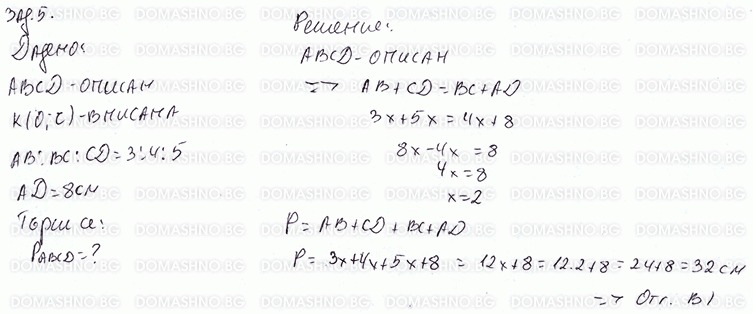 Зад. 5.
Дадено:
ABCD - описан
k(O; r) - вписана
AB : BC : CD = 3 : 4 : 5
AD = 8 см
Търси се:
PABCD = ?
Решение:
ABCD - описан
=> AB + CD = BC + AD
3x + 5x = 4x + 8
8x - 4x = 8
4x = 8
x = 2
P = AB + CD + BC + AD
P = 3x + 4x + 5x + 8 = 12x + 8 = 12.2 + 8 = 24 + 8 = 32 см
=> Отг. В)
DOMASHNO.BG